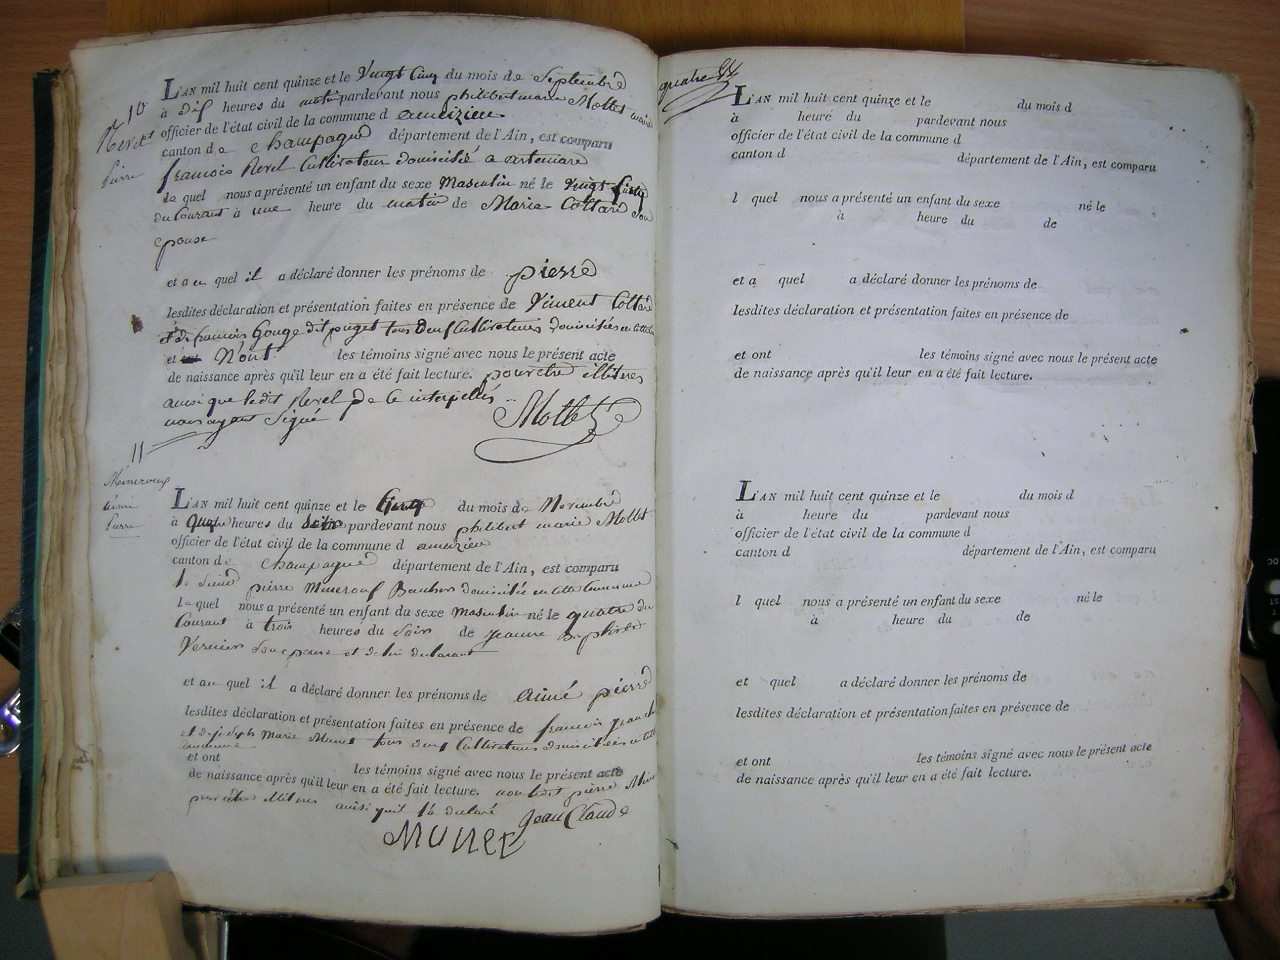 10
Revel
Pierre
L'AN mil huit cent quinze et le Vingt Cinq du mois de Septembre
à dix heures du matin pardevant nous philibert marie Mollet maire
officier de l'état civil de la commune d ameizieu
canton de Champagne département de l'Ain, est comparu
françois Revel Cultivateur domicilié a artemare
le quel nous a présenté un enfant du sexe Masculin né le Vingt
du Courant à une heure du matin de Marie Cottard Son
Epouse
et au quel il a déclaré donner les prénoms de pierre
lesdites déclaration et présentation faites en présence de Vincent Cottard
et de francois Gouge dit puget tous deux Cultivateurs domiciliés
et Nont les témoins signé avec nous le présent acte
de naissance après qu'il leur en a été fait lecture. pour etre illitérés
ainsi que ledit Revel de ce interpellés
nous ayant Signé
Mollet
11
aimé
Pierre
L'AN mil huit cent quinze et le Cinq du mois de Novembre
à heures du Soir pardevant nous philibert marie Mollet
officier de l'état civil de la commune d ameizieu
canton de Champagne département de l'Ain, est comparu
le pierre domicilié en cette Commune
le quel nous a présenté un enfant du sexe masculin né le quatre du
Courant à trois heures du Soir de jeanne
Son epouse et
et au quel il a déclaré donner les prénoms de aimé pierre
lesdites déclaration et présentation faites en présence de francois
et de joseph Marie Munet tous deux Cultivateurs domiciliés
commune
et ont les témoins signé avec nous le présent acte
de naissance après qu'il leur en a été fait lecture. non ledit pierre
pour etre illitéré ainsi quil la declaré jean Claude
MUNET
quatre
L'AN mil huit cent quinze et le du mois d
à heure du pardevant nous
officier de l'état civil de la commune d
canton d département de l'Ain, est comparu
l quel nous a présenté un enfant du sexe né le
à heure du de
et a quel a déclaré donner les prénoms de
lesdites déclaration et présentation faites en présence de
et ont les témoins signé avec nous le présent acte
de naissance après qu'il leur en a été fait lecture.
L'AN mil huit cent quinze et le du mois d
à heure du pardevant nous
officier de l'état civil de la commune d
canton d département de l'Ain, est comparu
l quel nous a présenté un enfant du sexe né le
à heure du de
et quel a déclaré donner les prénoms de
lesdites déclaration et présentation faites en présence de
et ont les témoins signé avec nous le présent acte
de naissance après qu'il leur en a été fait lecture.